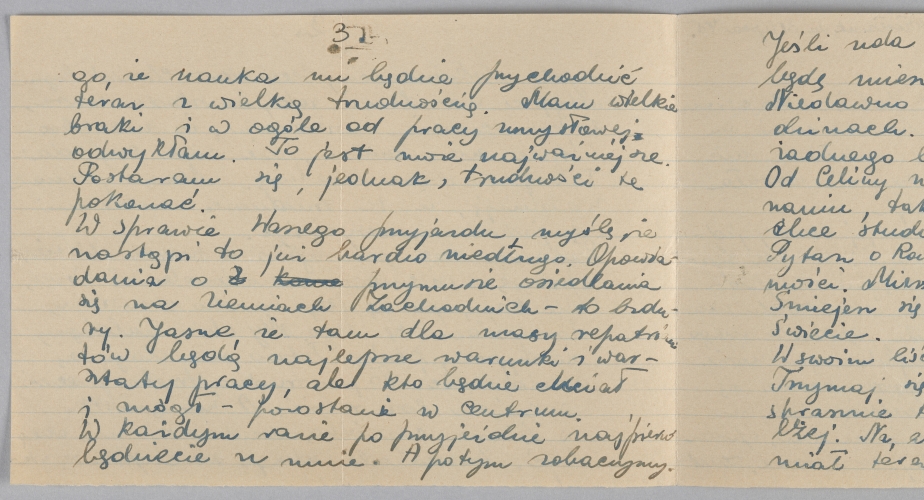 32.
go, że nauka mi będzie przychodzić
teraz z wielką trudnością. Mam wielkie
braki i w ogóle od pracy umysłowej
odwykłam. To jest moje najważniejsze.
Postaram się, jednak, trudności te
pokonać.
W sprawie Waszego przyjazdu, myślę, że
nastąpi to już bardzo niedługo. Opowia-
dania o przymusie osiedlania
się na Ziemiach Zachodnich – to bzdu-
ry. Jasne, że tam dla masy repatrian
tów będą najlepsze warunki i war-
sztaty pracy, ale kto będzie chciał
i mógł – pozostanie w centrum.
W każdym razie po przyjeździe najpierw
będziecie u mnie. A potym zobaczymy.
Jeśli uda
będę
Niedawno
dzinach.
żadnego
Od Celiny
nami,
chce
Pytasz o
mości.
Śmiejesz się
świecie.
W swoim
Trzymaj się
sprawnie
bżej. No,
miał